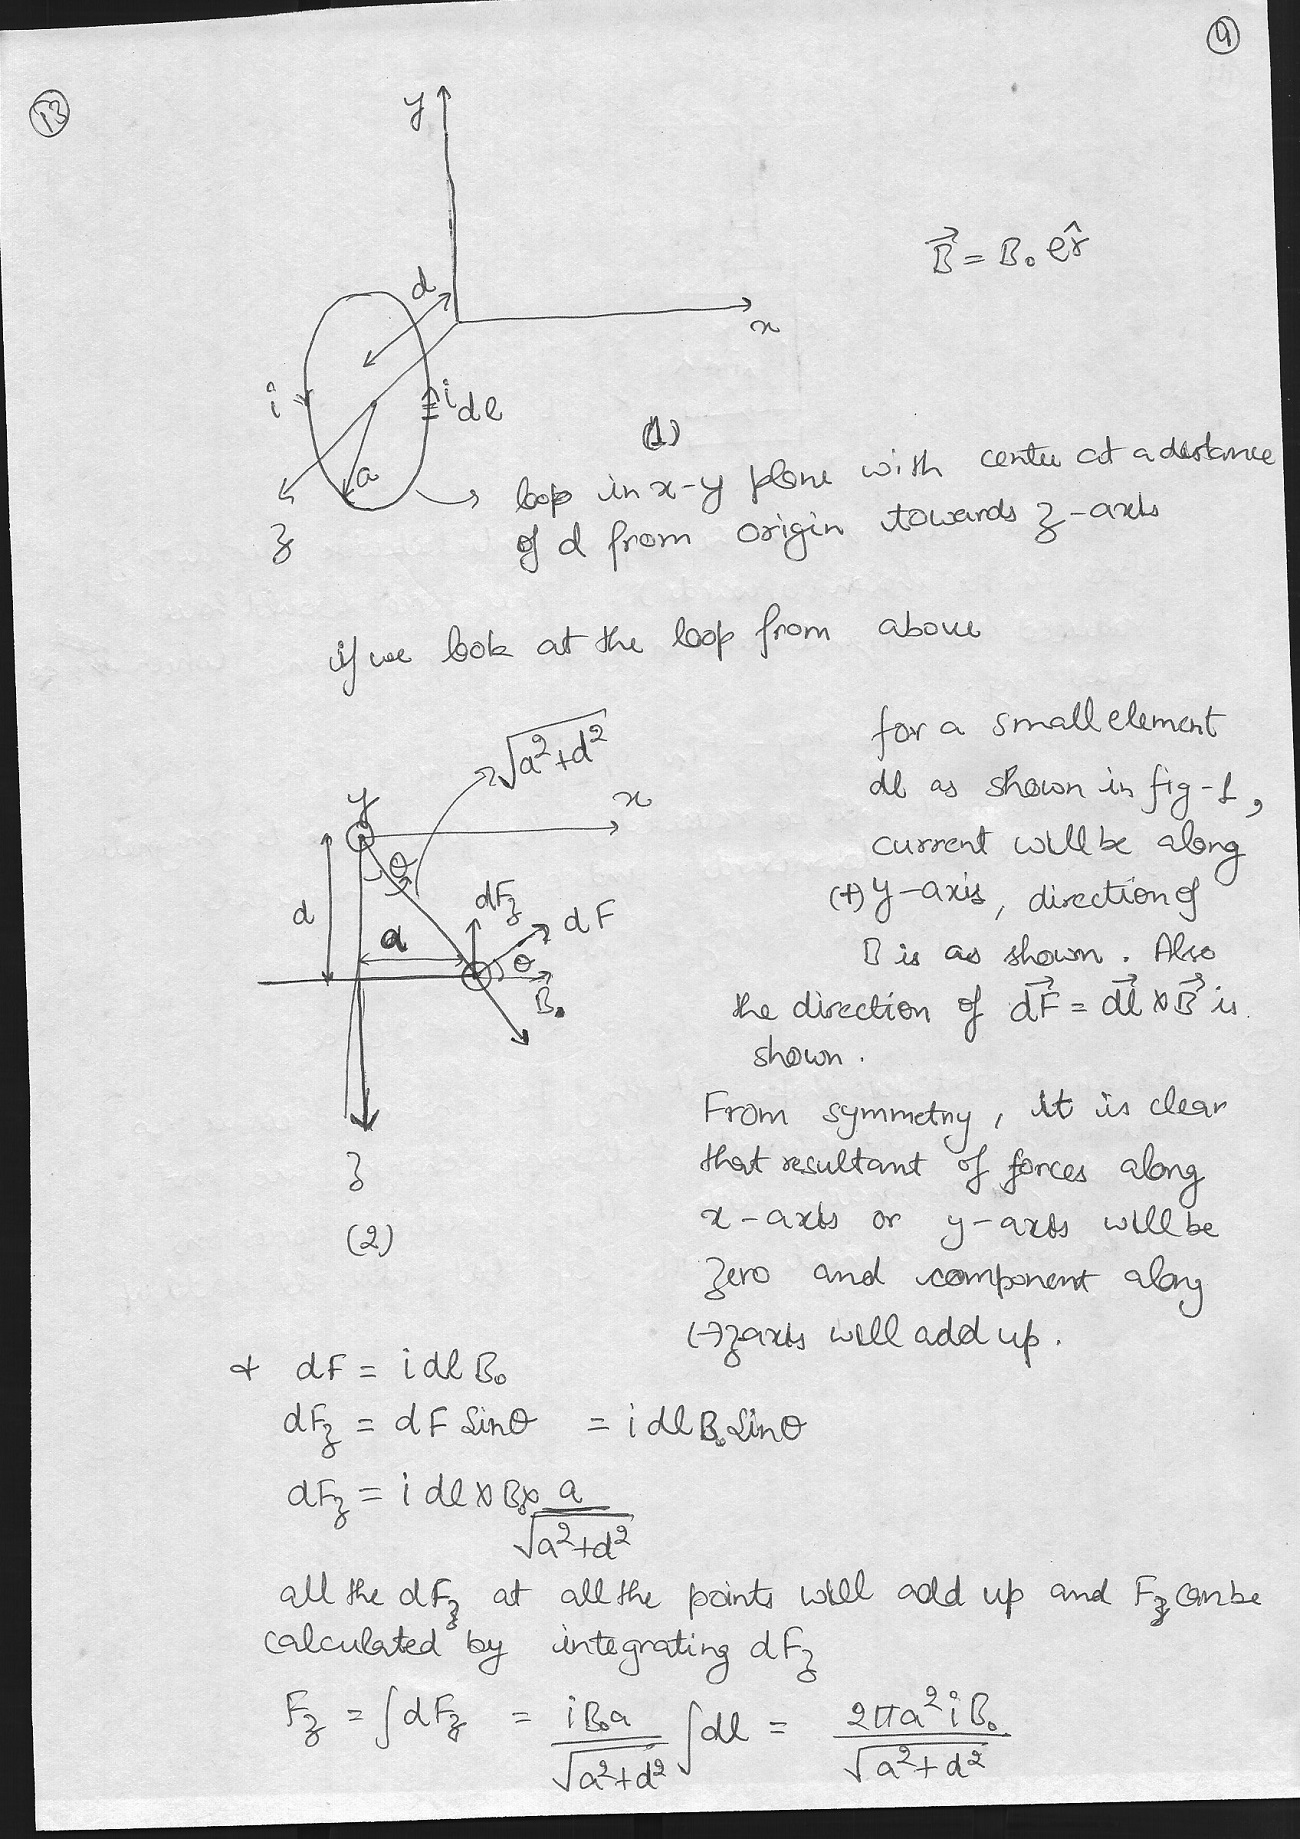 9
13
y
B⃗ = B₀ e r̂
d
x
i
i
dl
a
z
(1)
loop in x-y plane with center at a distance
of d from origin towards z-axis
if we look at the loop from above
√a²+d²
for a small element
dl as shown in fig-1,
y
x
current will be along
θ
(+) y-axis, direction of
dFz
d
dF
a
θ
B is as shown. Also
B₀
the direction of dF⃗ = dl⃗ × B⃗ is
shown.
From symmetry, it is clear
that resultant of forces along
z
x-axis or y-axis will be
(2)
zero and component along
(-)z axis will add up.
& dF = i dl B₀
dFz = dF Sinθ = i dl B₀ Sinθ
dFz = i dl × B₀ × a / √a²+d²
all the dFz at all the points will add up and Fz can be
calculated by integrating dFz
Fz = ∫dFz = iB₀a / √a²+d² ∫dl = 2πa²iB₀ / √a²+d²